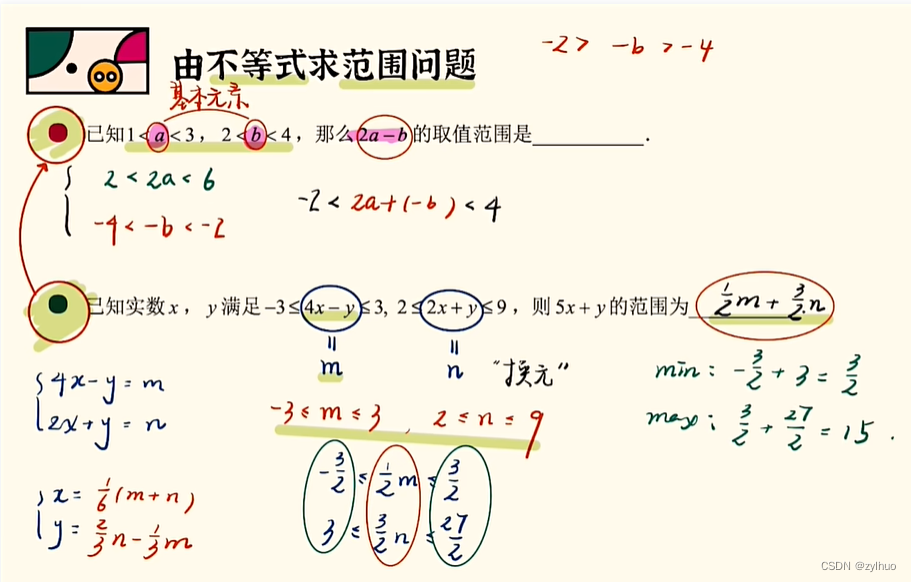 -2 > -b > -4
由不等式求范围问题
基本元素
已知1<a<3，2<b<4，那么2a−b的取值范围是__________.
2 < 2a < 6
-4 < -b < -2
-2 < 2a+(-b) < 4
已知实数x，y满足−3≤4x−y≤3, 2≤2x+y≤9，则5x+y的范围为 1/2 m + 3/2 n
= m
= n
“换元”
4x-y = m
2x+y = n
-3 ≤ m ≤ 3 , 2 ≤ n ≤ 9
min: -3/2 + 3 = 3/2
max: 3/2 + 27/2 = 15 .
-3/2 ≤ 1/2 m ≤ 3/2
3 ≤ 3/2 n ≤ 27/2
x = 1/6 (m+n)
y = 2/3 n - 1/3 m
CSDN @zylhuo